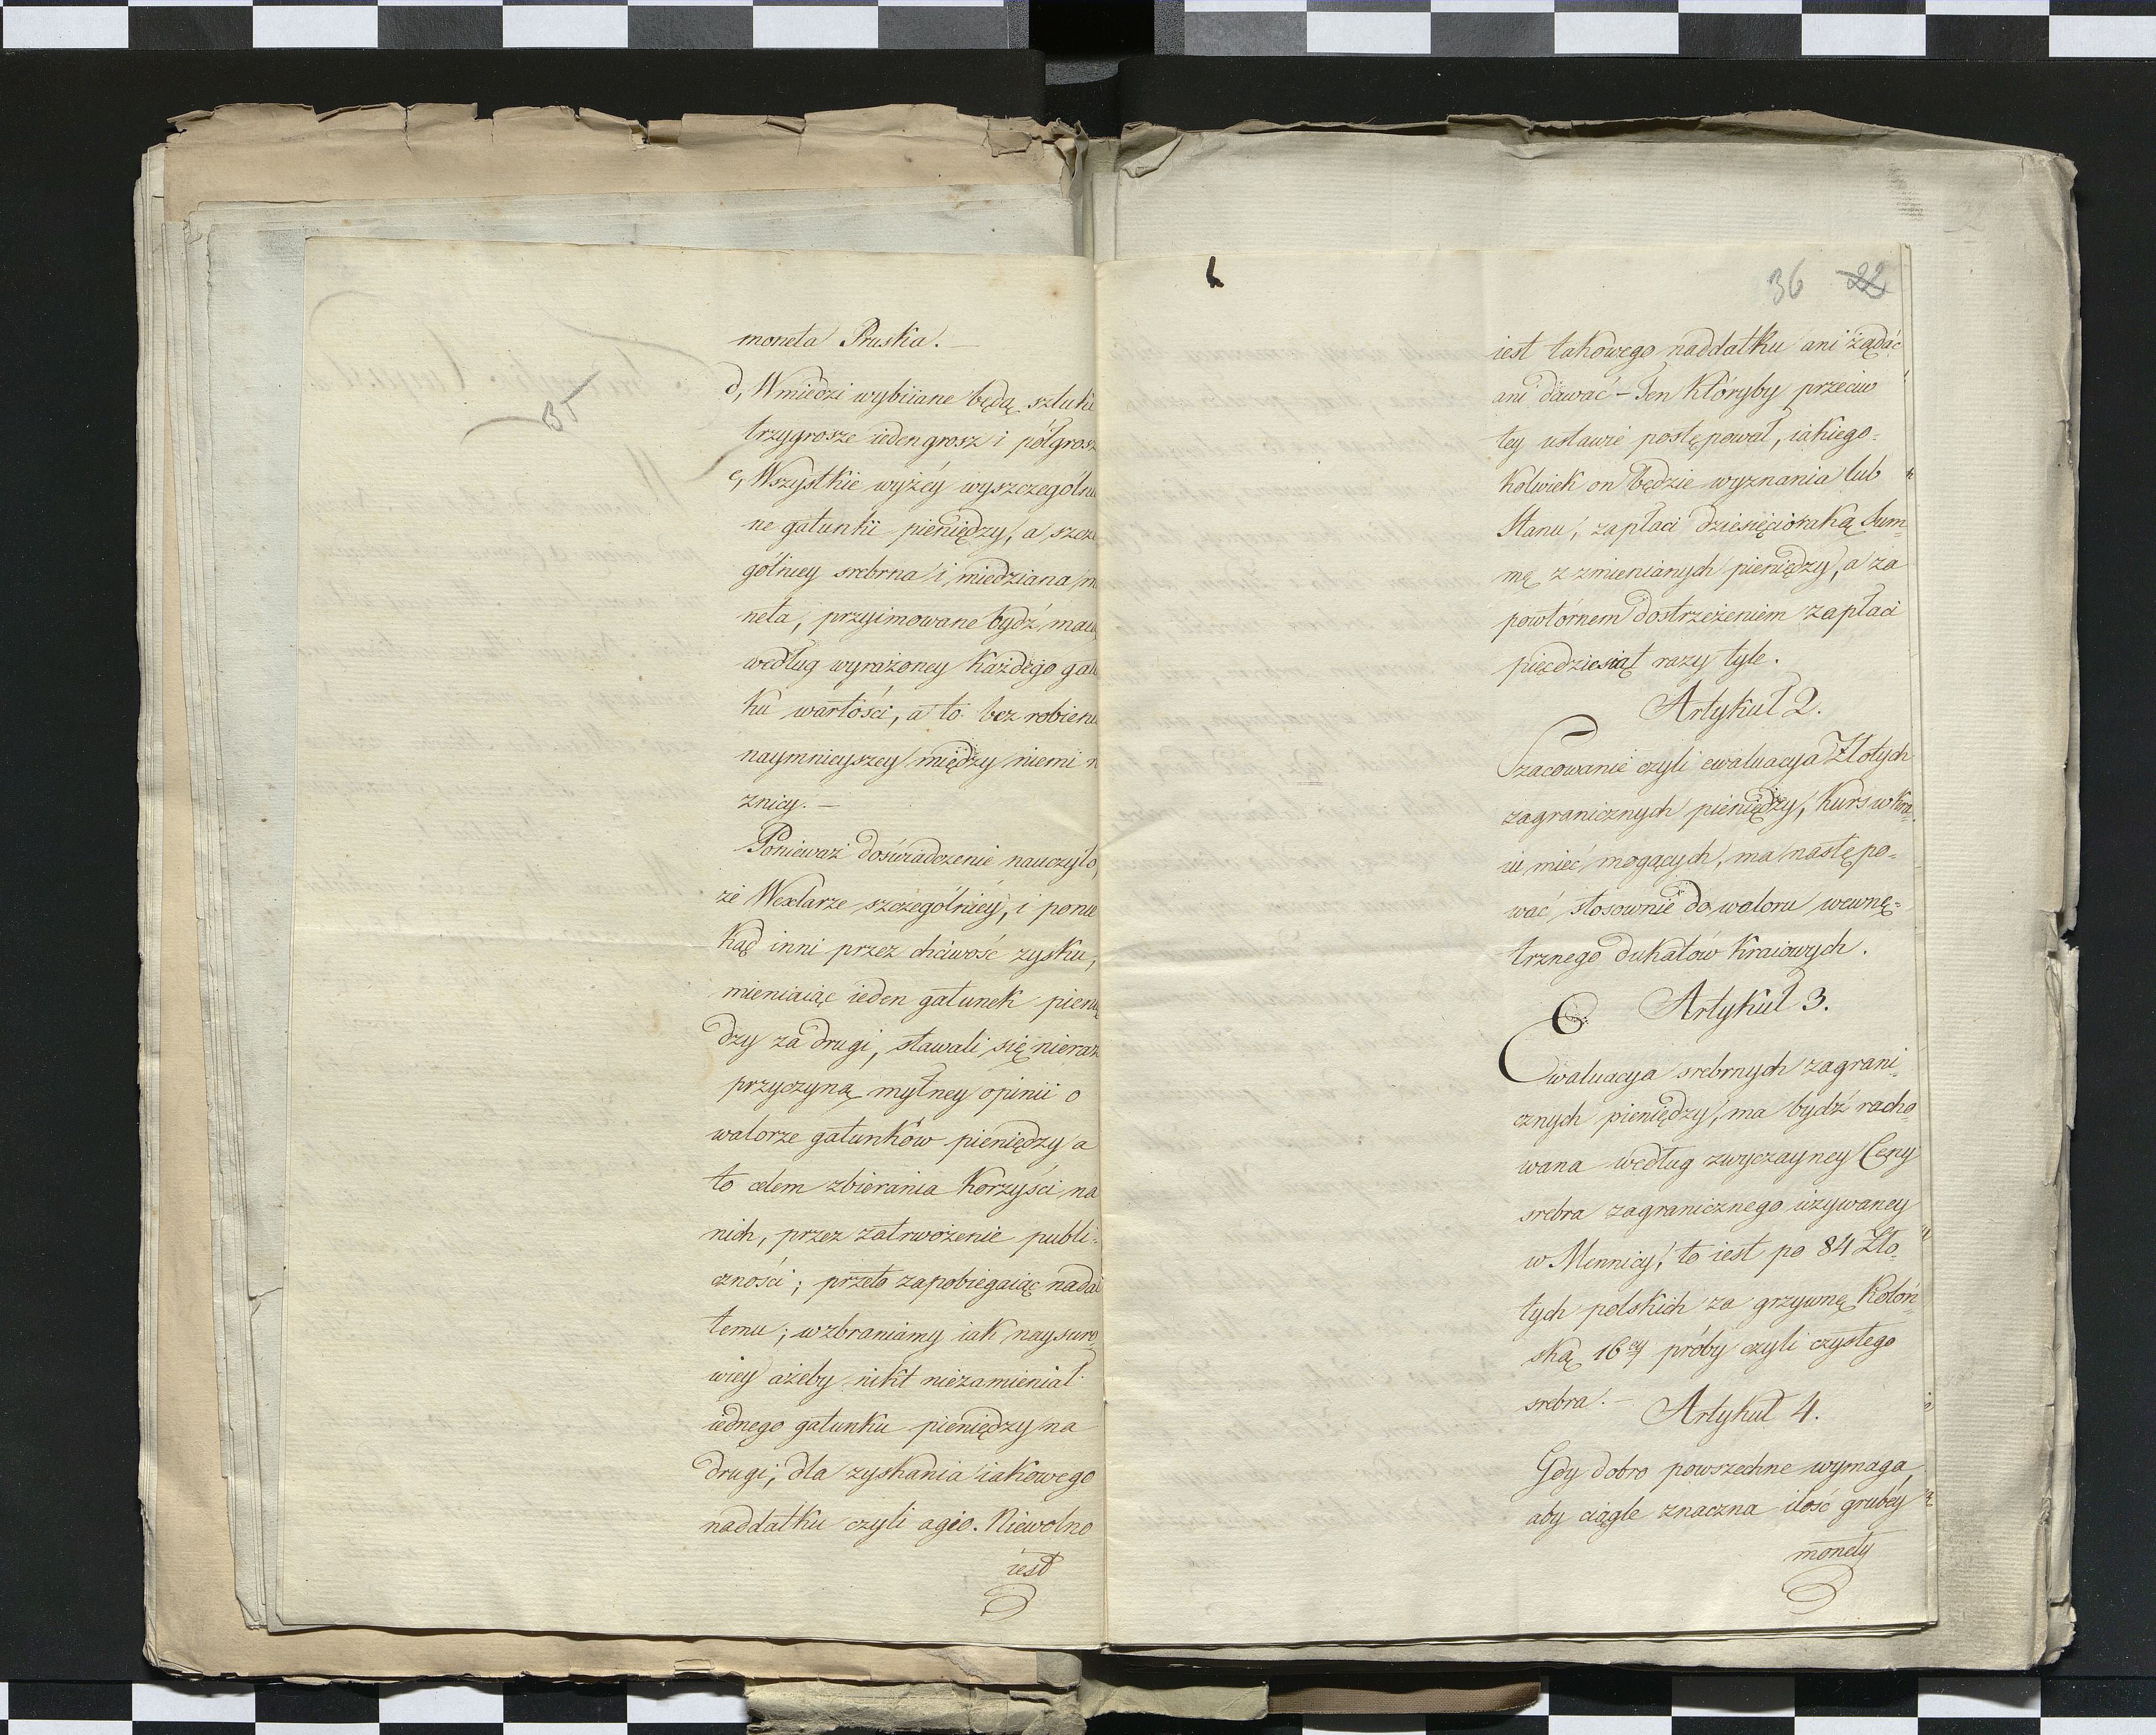 35
moneta Pruska. —
d, W miedzi wybiiane będą sztuki
trzygrosze ieden grosz i półgrosz
e, Wszystkie wyżéy wyszczególni
ne gatunki pieniędzy, a szcze
gólniey srebrna i miedziana m
neta, przyimowane bydź maią
według wyrażoney każdego gatu
ku wartości, a to bez robieni
naymnieyszey między niemi r
żnicy. —
Ponieważ doświadczenie nauczyło,
że Wexlarze szczególniéy, i ponie
kąd inni przez chciwość zysku,
mieniaiąc ieden gatunek pienię
dzy za drugi, stawali się nieraz
przyczyną mylney opinii o
walorze gatunków pieniędzy a
to celem zbierania korzyści na
nich, przez zatrwożenie publi=
czności; przeto zapobiegaiąc nadal
temu; wzbraniamy iak naysuro
wiey ażeby nikt niezamieniał
iednego gatunku pieniędzy na
drugi; dla zyskania iakowego
naddatku czyli agio. Niewolno
iest
36 22
iest takowego naddatku ani żądać
ani dawać – Ten któryby przeciw
tey ustawie postępował, iakiego=
kolwiek on będzie wyznania lub
Stanu, zapłaci dziesięcioraką Sum=
mę z zmienianych pieniędzy, a za
powtórnem dostrzeżeniem zapłaci
pięćdziesiąt razy tyle.
Artykuł 2.
Szacowanie czyli ewaluacya Złotych
zagranicznych pieniędzy, kurs w kra=
iu mieć mogących, ma następo=
wać stosownie do waloru wewnę=
trznego dukatów kraiowych.
E Artykuł 3.
Ewaluacya srebrnych zagrani=
cznych pieniędzy, ma bydź racho
wana według zwyczayney Ceny
srebra zagranicznego używaney
w Mennicy, to iest po 84 Zło=
tych polskich za grzywnę Koloń=
ską 16ey próby czyli czystego
srebra. – Artykuł 4.
Gdy dobro powszechne wymaga,
aby ciągle znaczna ilość grubéy
monety